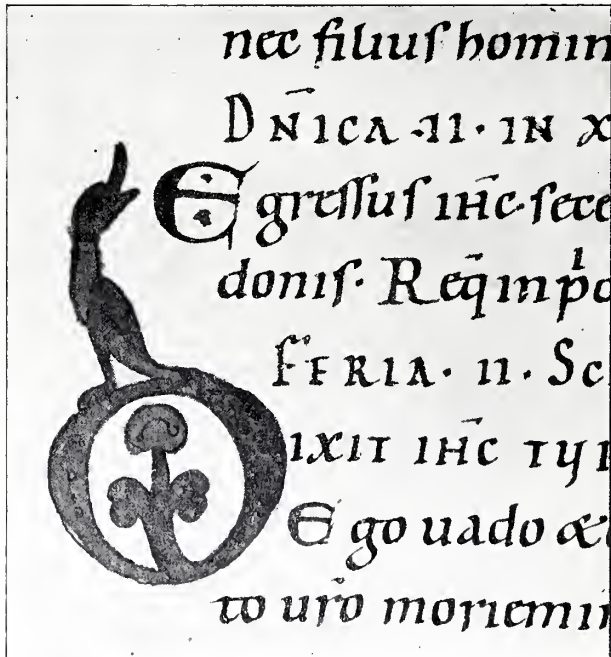 nec filiuſ homin
DN̄ICA ·II· IN X
Egreſſuſ IH̄C· ſece
doniſ· Req̄ inp̄o
FERIA· II· Sc
DIXIT IH̄C TYR
Ego uado &
to ur̄o moriemin